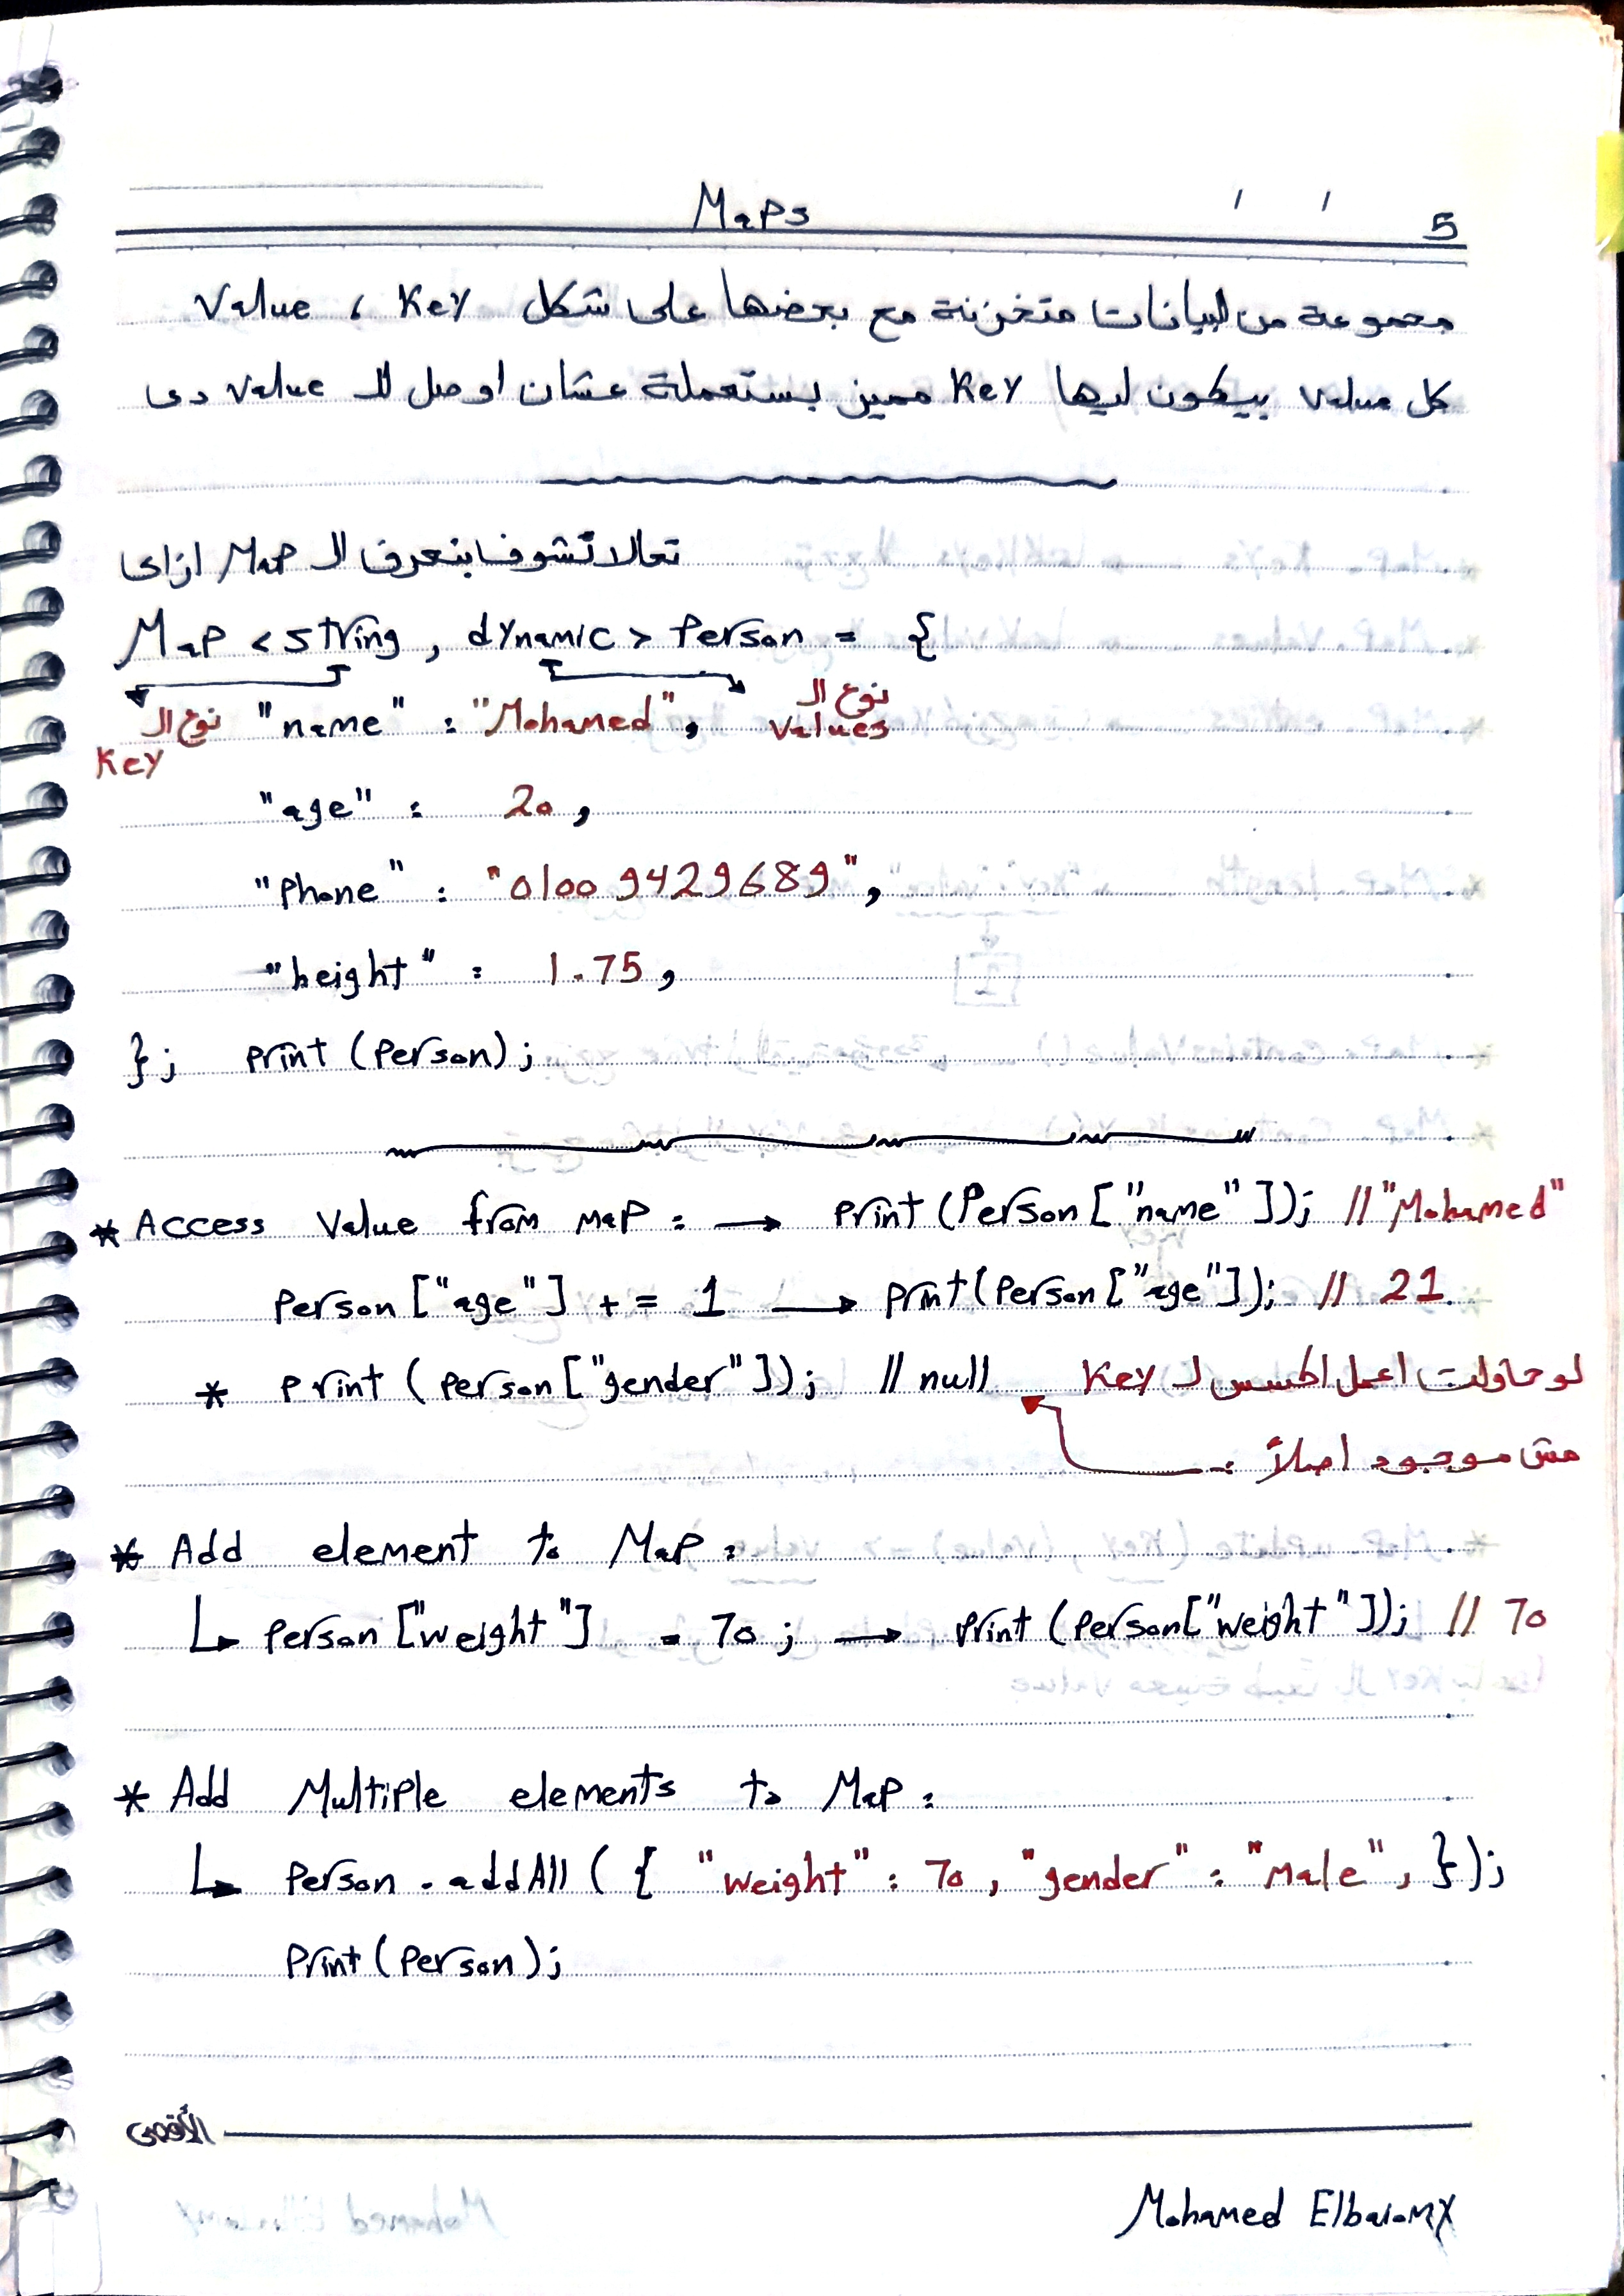 Maps
5
مجموعة من البيانات متخزنة مع بعضها على شكل Key ، Value
كل Value بيكون ليها Key مميز بستعملة عشان اوصل لل Value دى
تعالا نشوف بنعرف ال Map ازاى
Map <string, dynamic> Person = {
نوع ال Key
"name" : "Mohamed",
نوع ال Values
"age" : 20,
"Phone" : "01009429689",
"height" : 1.75,
}; print (Person);
* Access Value from map : → print (Person ["name"]); // "Mohamed"
Person ["age"] += 1 → print (Person ["age"]); // 21
* print (person ["gender"]); // null لو حاولت اعمل اكسس ل Key
مش موجود اصلاً
* Add element to Map :
↳ Person ["weight"] = 70 ; → print (person ["weight"]); // 70
* Add Multiple elements to Map :
↳ Person . addAll ( { "weight" : 70 , "gender" : "Male" , } );
Print (Person);
الأقصى
Mohamed